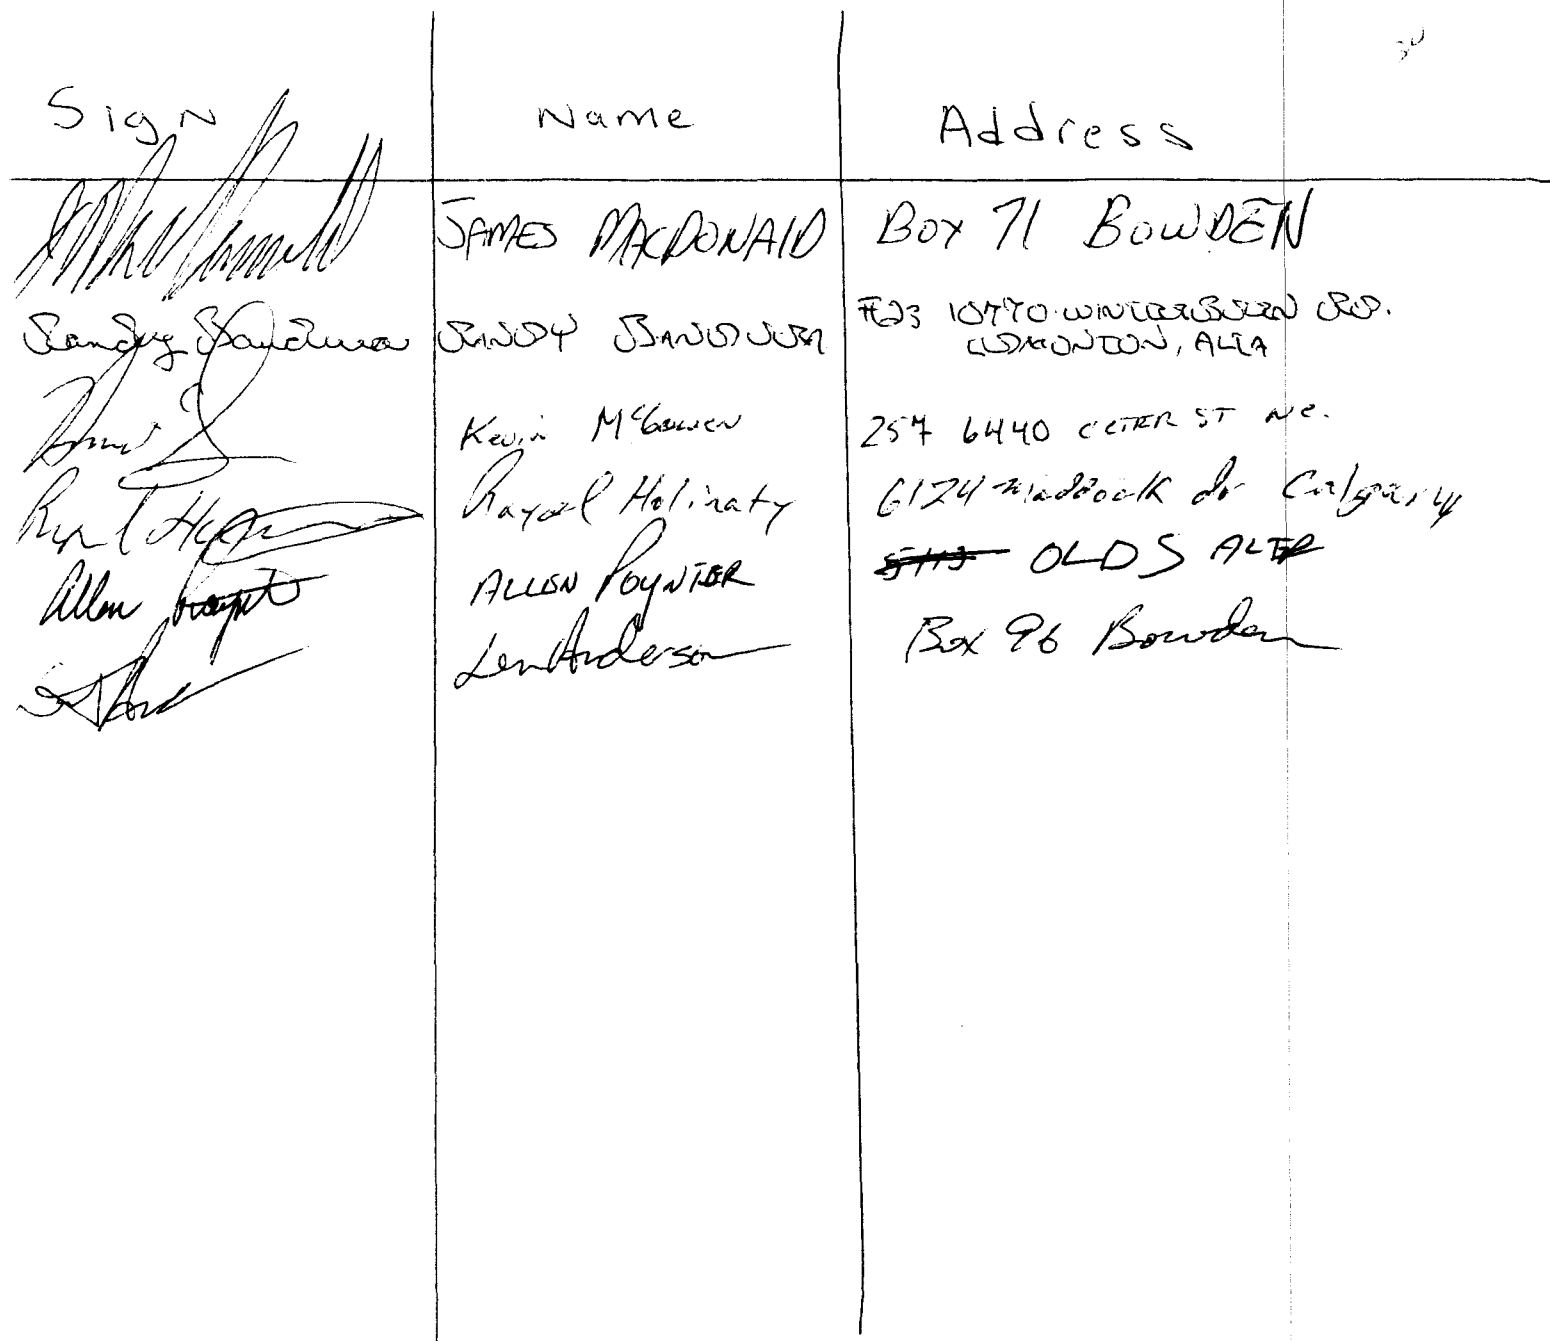 Sign Name Address
JAMES MACDONALD Box 71 BOWDEN
Sandy #23 10770 WINTERBURN RD.
EDMONTON, ALTA
Kevin McGowen 257 6440 CETER ST NE.
Holinaty 6124 Maddock dr Calgary
Allen ALLEN POYNTER OLDS ALTA
Len Anderson Box 96 Bowden